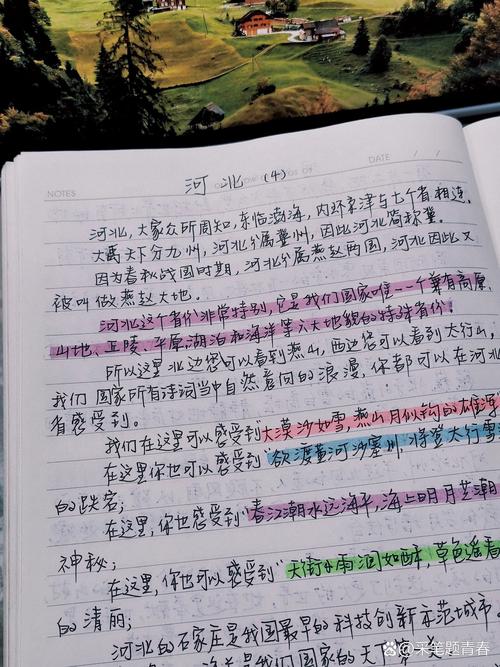 NOTES
DATE / /
河北 (4)
河北，大家众所周知，东临渤海，内环京津与七个省相连。
大禹天下分九州，河北分属冀州，因此河北简称冀。
因为春秋战国时期，河北分属燕赵两国，河北因此又
被叫做燕赵大地。
河北这个省份非常特别，它是我们国家唯一一个兼有高原、
山地、丘陵、平原、湖泊和海洋等六大地貌的特殊省份。
所以这里北边您可以看到燕山，西边您可以看到太行山，
我们国家所有诗词当中自然意向的浪漫，你都可以在河北
省感受到。
我们在这里可以感受到"大漠沙如雪，燕山月似钩的雄浑
在这里你也可以感受到"欲渡黄河冰塞川，将登太行雪
的跌宕；
在这里，你也感受到"春江潮水连海平，海上明月共潮
神秘；
在这里，你也可以感受到"天街小雨润如酥，草色遥看
的清丽；
河北的石家庄是我国最早的科技创新示范城市。
我们国家的天下第一
采笔题青春